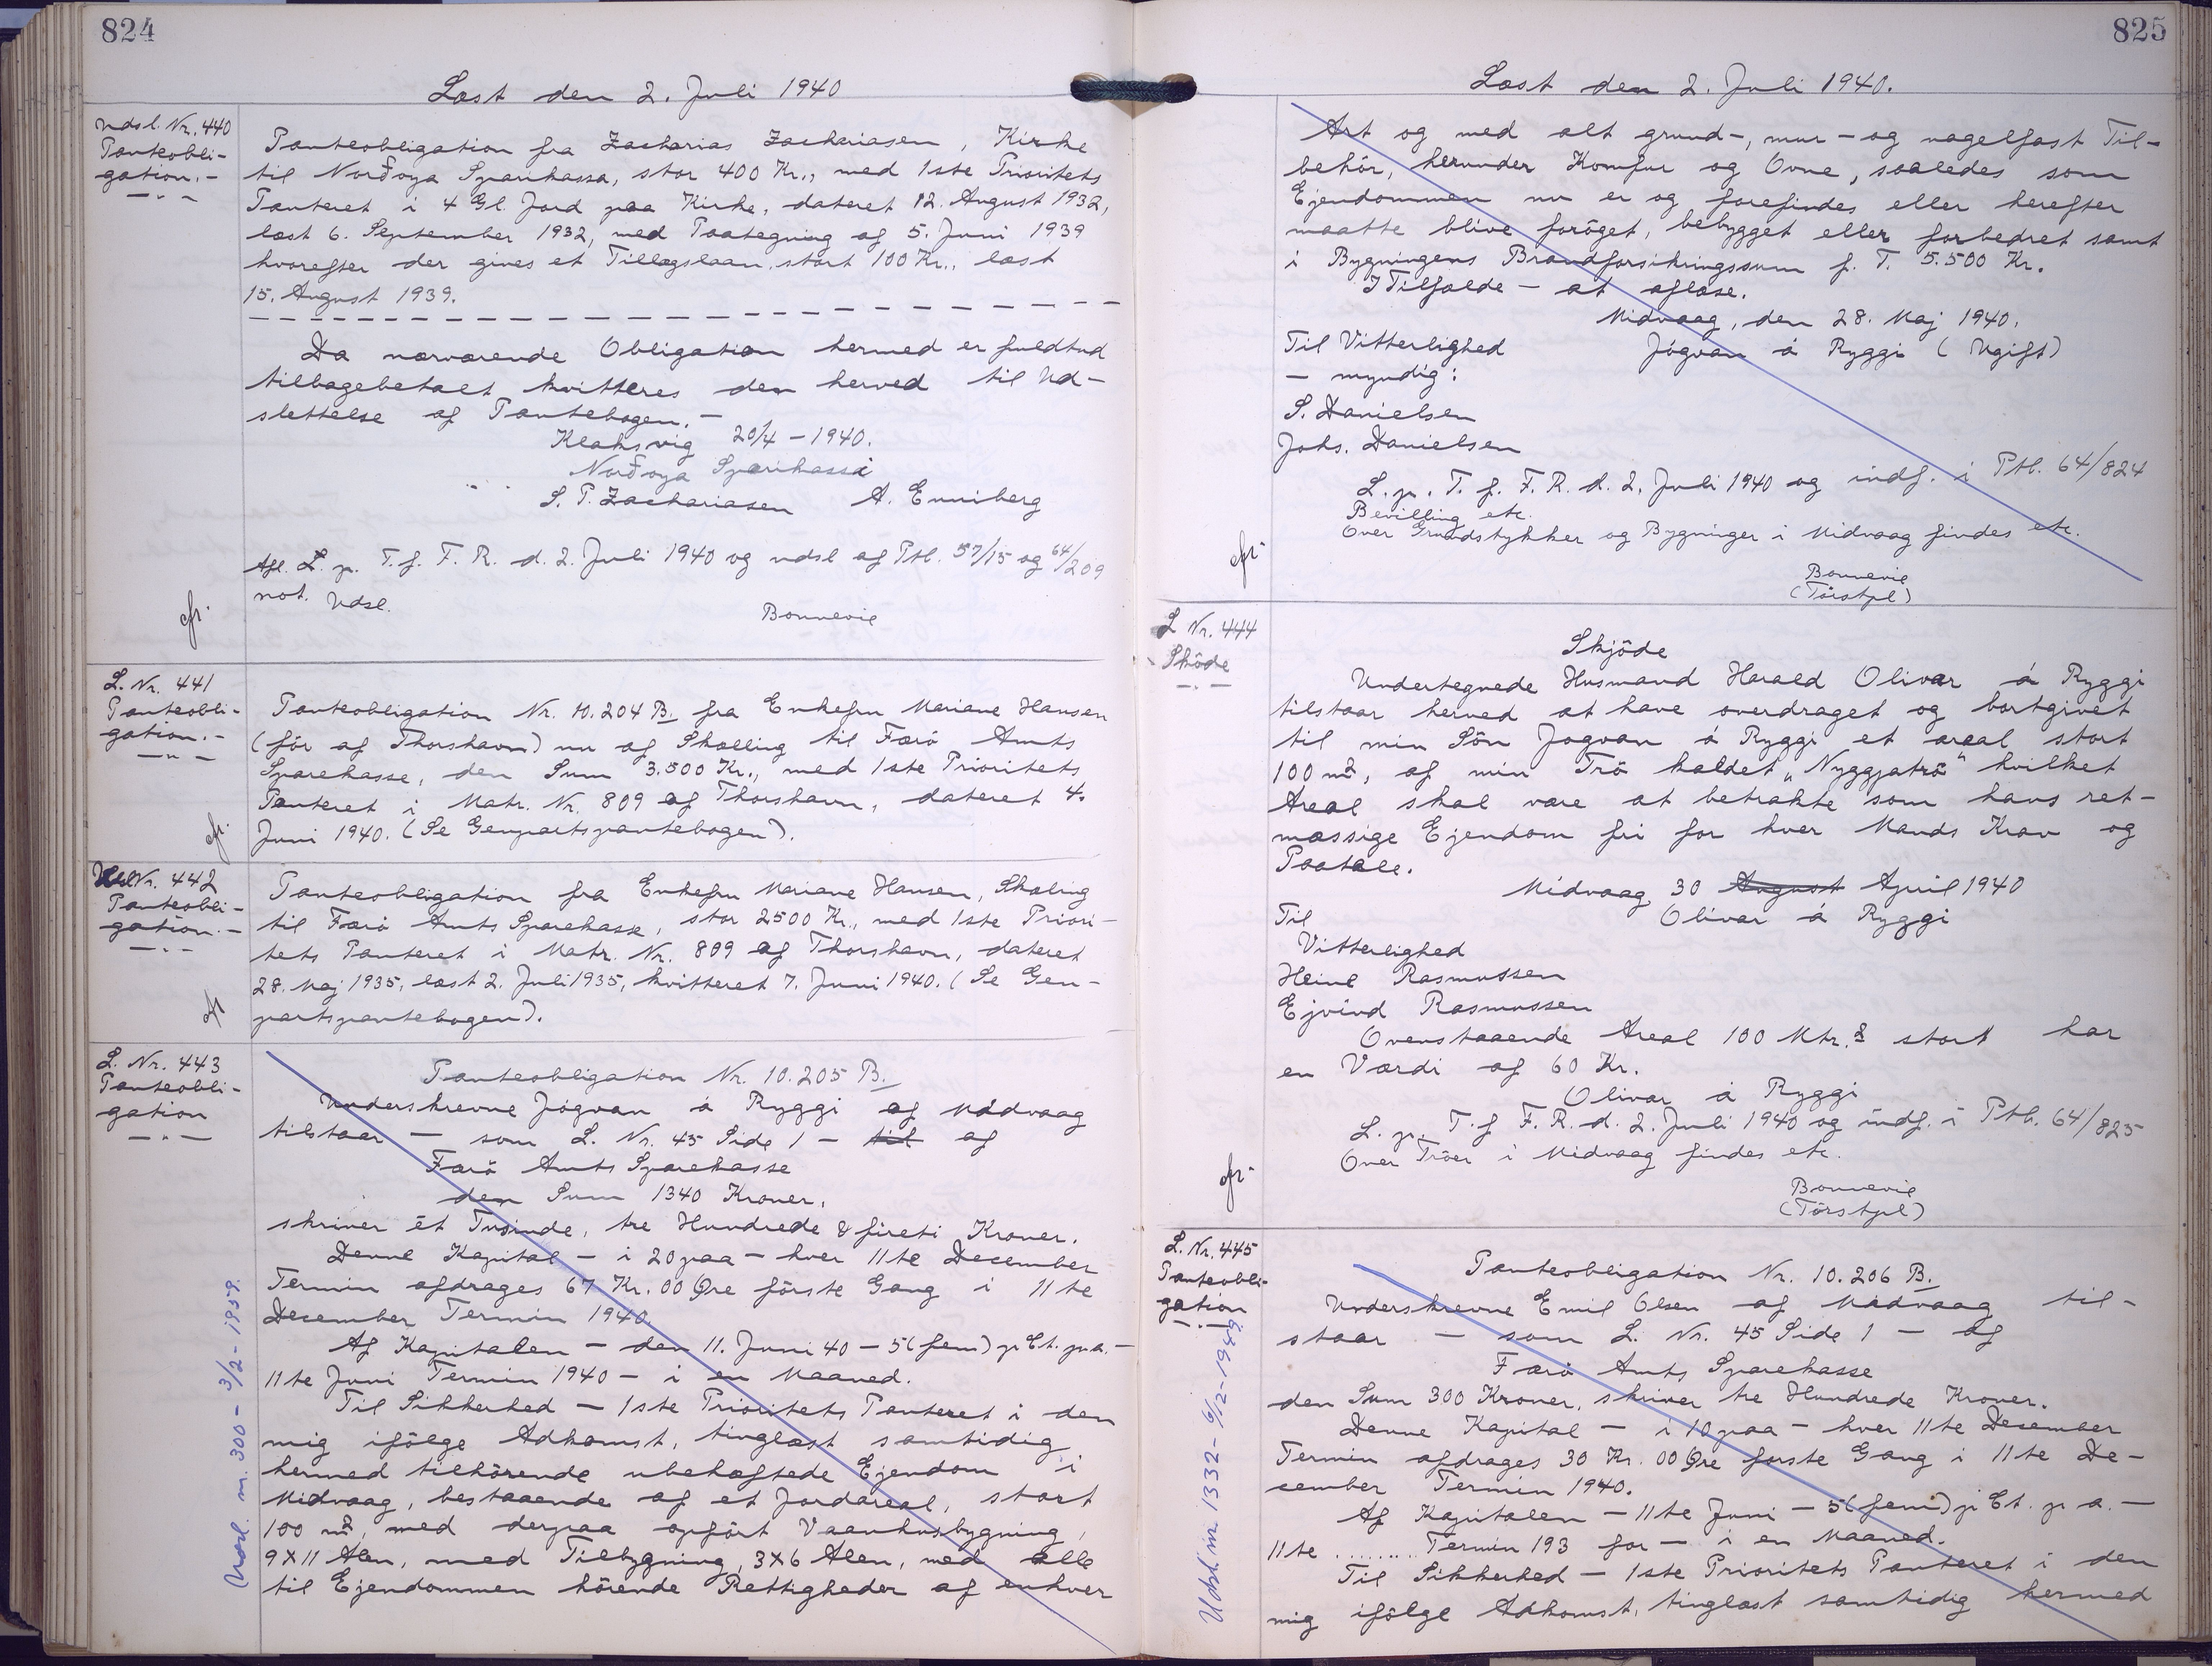 824
Læst den 2. Juli 1940
Udsl. Nr. 440
Panteobli-
gation.-
Panteobligation fra Zacharias Zachariasen, Kirke
til Norðoya Sparikassa, stor 400 Kr., med 1ste Prioritets
Panteret i 4 Gl. Jord paa Kirke, dateret 12. August 1932,
læst 6. September 1932, med Paategning af 5. Juni 1939
hvorefter der gives et Tillægslaan stort 100 Kr., læst
15. August 1939.
Da nærværende Obligation hermed er fuldtud
tilbagebetalt kvitteres den herved til Ud-
slettelse af Pantebogen.-
Klaksvig 20/4 - 1940.
Norðoya Sparikassi
S. P. Zachariasen A. Enniberg
Afl. L. p. T. f. F. R. d. 2. Juli 1940 og udsl af Ptb. 57/15 og 64/209
not. Udsl.
Bonnevie
cfr.
L. Nr. 441
Panteobli-
gation.-
Panteobligation Nr. 10.204 B. fra Enkefru Mariane Hansen
(för af Thorshavn) nu af Skælling til Færö Amts
Sparekasse, den Sum 3.500 Kr., med 1ste Prioritets
Panteret i Matr. Nr. 809 af Thorshavn, dateret 4.
Juni 1940. (Se Genpartspantebogen).
cfr.
Udsl Nr. 442
Panteobli-
gation.-
Panteobligation fra Enkefru Mariane Hansen, Skæling
til Færö Amts Sparekasse, stor 2500 Kr., med 1ste Priori-
tets Panteret i Matr. Nr. 809 af Thorshavn, dateret
28. Maj 1935, læst 2. Juli 1935, kvitteret 7. Juni 1940. (Se Gen-
partspantebogen).
cfr
L. Nr. 443
Panteobli-
gation
Panteobligation Nr. 10.205 B.
Underskrevne Jógvan á Ryggi af Midvaag
tilstaar — som L. Nr. 45 Side 1 — til af
Færö Amts Sparekasse
den Sum 1340 Kroner,
skriver ét Tusinde, tre Hundrede & fireti Kroner.
Denne Kapital — i 20 paa — hver 11te December
Termin afdrages 67 Kr. 00 Øre förste Gang i 11te
December Termin 1940.
Af Kapitalen — den 11. Juni 40 — 5 (fem) p Ct. p. a. —
11te Juni Termin 1940 — i en Maaned.
Til Sikkerhed — 1ste Prioritets Panteret i den
mig ifölge Adkomst, tinglæst samtidig
hermed tilhörende ubehæftede Ejendom i
Midvaag, bestaaende af et Jordareal, stort
100 m², med derpaa opfört Vaanhusbygning,
9 X 11 Alen, med Tilbygning, 3 X 6 Alen, med alle
til Ejendommen hörende Rettigheder af enhver
Udsl. m. 300 - 3/2 - 1959.
825
Læst den 2. Juli 1940.
Art og med alt grund-, mur- og nagelfast Til-
behör, herunder Komfur og Ovne, saaledes som
Ejendommen nu er og forefindes eller herefter
maatte blive foröget, bebygget eller forbedret samt
i Bygningens Brandforsikringssum p. T. 5.500 Kr.
I Tilfælde — at aflæse.
Midvaag, den 28. Maj 1940.
Til Vitterlighed Jógvan á Ryggi (Ugift)
— myndig:
S. Danielsen
Johs. Danielsen
L. p. T. f. F. R. d. 2. Juli 1940 og indf. i Ptb. 64/824
Bevilling etc.
Over Grundstykker og Bygninger i Midvaag findes etc.
Bonnevie
(Törstpl)
cfr.
L Nr. 444
Sköde
Skjöde
Undertegnede Husmand Harald Olivar á Ryggi
tilstaar herved at have overdraget og bortgivet
til min Sön Jogvan á Ryggi et areal stort
100 m², af min Trö kaldet „Nyggjatrö" hvilket
Areal skal være at betrakte som hans ret-
mæssige Ejendom fri for hver Mands Krav og
Paatale.
Midvaag 30 August April 1940
Til Olivar á Ryggi
Vitterlighed
Heine Rasmussen
Ejvind Rasmussen
Ovenstaaende Areal 100 Mtr.² stort har
en Værdi af 60 Kr.
Olivar á Ryggi
L. p. T. f F. R. d. 2. Juli 1940 og indf. i Ptb. 64/825
Over Tröer i Midvaag findes etc.
Bonnevie
(Törstpl)
cfr.
L. Nr. 445
Panteobli-
gation
Panteobligation Nr. 10.206 B.
Underskrevne Emil Olsen af Midvaag til-
staar — som L. Nr. 45 Side 1 — af
Færö Amts Sparekasse
den Sum 300 Kroner, skriver tre Hundrede Kroner.
Denne Kapital — i 10 paa — hver 11te December
Termin afdrages 30 Kr. 00 Øre förste Gang i 11te De-
cember Termin 1940.
Af Kapitalen — 11te Juni — 5 (fem) p Ct. p. a. —
11te ......... Termin 193 for — i en Maaned.
Til Sikkerhed — 1ste Prioritets Panteret i den
mig ifölge Adkomst, tinglæst samtidig hermed
Udsl. m. 1332 - 6/12 - 1949.